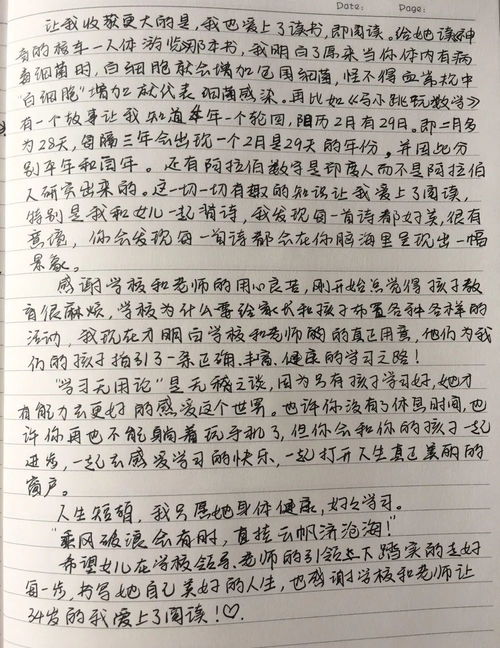 Date: Page:
让我收获更大的是,我也爱上了读书,即阅读。给她读神
奇的校车—人体游览那本书,我明白了原来当你体内有病
毒细菌时,白细胞就会增加包围细菌,怪不得血常规中
"白细胞"增加就代表细菌感染。再比如《马小跳玩数学》
有一个故事让我知道4年一个轮回,阳历2月有29日。即二月多
为28天,每隔三年会出现一个2月是29天的年份,并因此分
别平年和闰年。还有阿拉伯数字是印度人而不是阿拉伯
人研究出来的。这一切一切有趣的知识让我爱上了阅读,
特别是我和女儿一起背诗,我发现每一首诗都好美,很有
意境,你会发现每一首诗都会在你脑海里呈现出一幅
景象。
感谢学校和老师的用心良苦,刚开始总觉得孩子教
育很麻烦,学校为什么要给家长和孩子布置各种各样的
活动,我现在才明白学校和老师的的真正用意,他们为我
们的孩子指引了一条正确、丰富、健康的学习之路!
"学习无用论"是无稽之谈,因为只有孩子学习好,她才
有能力去更好的感爱这个世界。也许你没有了休息时间,也
许你再也不能躺着玩手机了,但你会和你的孩子一起
进步,一起去感爱学习的快乐,一起打开人生真正美丽的
窗户。
人生短暂,我只愿她身体健康,好好学习。
"乘风破浪会有时,直挂云帆济沧海!"
希望女儿在学校领导、老师的引领之下踏实的走好
每一步,书写她自己美好的人生,也感谢学校和老师让
34岁的我爱上了阅读!♡.